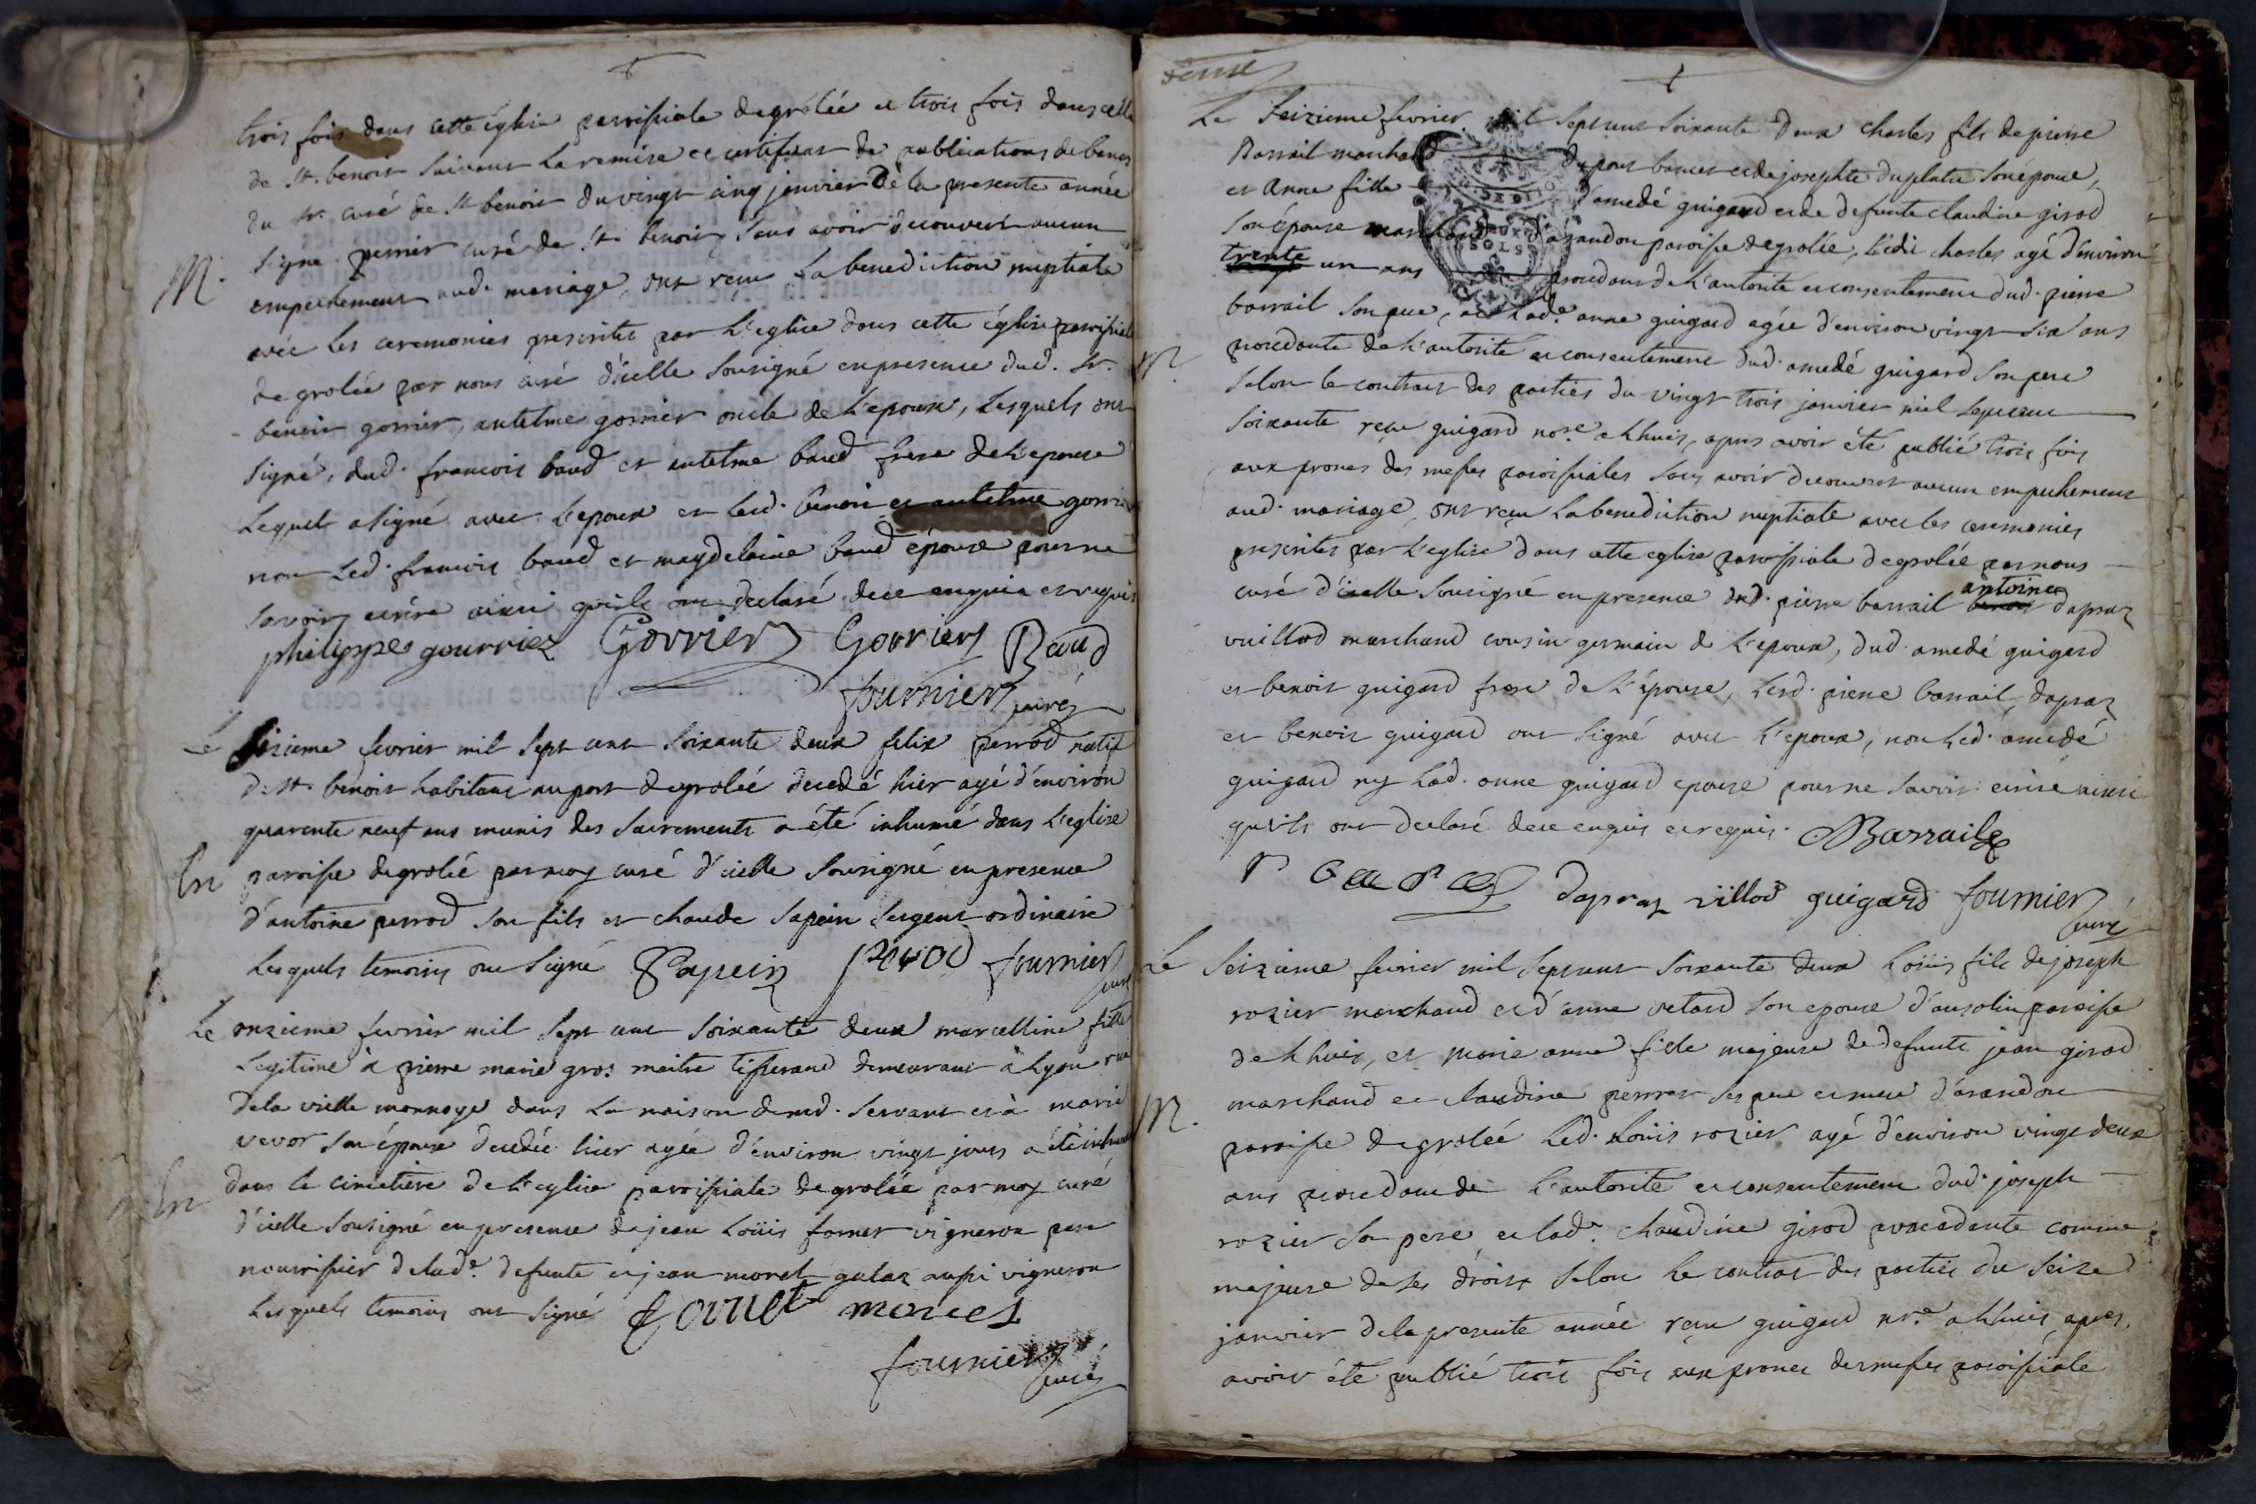 trois fois dans cette église paroissiale de grolée et trois fois dans celle
de st. benoit suivant la remise et certificat de publications de bancs
du sr. curé de st benoit du vingt cinq janvier de la presente année
signé perrier curé de st. benoit, sans avoir decouvert aucun
M.
empechement aud. mariage, ont reçu la benediction nuptiale
avec les ceremonies prescrites par l'eglise dans cette église paroissiale
de grolée par nous curé d'icelle sousigné en presence dud. sr.
benoit gorrier, antelme gorrier oncle de l'epoux, lesquels ont
signé, dud. francois baud et antelme baud frere de l'epouse
lequel a signé avec l'epoux et lesd. benoit et antelme gorrier
non led. francois baud et magdelaine baud épouse pour ne
savoir ecrire ainsi qu'ils ont declaré de ce enquis et requis
philippes gourriez Gorrier Gorrier Baud
fournier curé
Le sixieme fevrier mil sept cent soixante deux felix perrod natif
de st. benoit habitant au port de grolée decedé hier agé d'environ
quarente neuf ans munis des sacrements a été inhumé dans l'eglise
paroisse de grolée par moy curé d'icelle sousigné en presence
d'antoine perrod son fils et claude sapein sergent ordinaire
lesquels temoins ont signé Sapein perrod fournier curé
Le onzieme fevrier mil sept cent soixante deux marcelline fille
legitime à pierre marie gros maitre tisserand demeurant à lyon rue
de la vielle monnoye dans la maison de md. servant et à marie
vevor son épouse decedée hier agée d'environ vingt jours a été inhumée
dans le cimetière de l'eglise paroissiale de grolée par moy curé
d'icelle sousigné en presence de jean loüis fornet vigneron pere
nourissier de lade. defunte et jean morel galaz aussi vigneron
lesquels temoins ont signé fornet morel
fournier curé
Le seizieme fevrier mil sept cent soixante deux charles fils de pierre
Barrail marchand du pont bancet et de josephte duplatre son épouse,
et anne fille d'amedé guigard et de defunte claudine girod
DEUX
SOLS
son épouse marchand d'arandon paroisse de grolée, ledit charles agé d'environ
trente un ans procedant de l'autorité et consentement dud. pierre
barrail son pere, et lade. anne guigard agée d'environ vingt six ans
M.
procedante de l'autorité et consentement dud. amedé guigard son pere
selon le contract des parties du vingt trois janvier mil sept cent
soixante reçu guigard nore. a lhuis, apres avoir été publié trois fois
aux prones des messes paroissiales sans avoir decouvert aucun empechement
aud. mariage, ont reçu la benediction nuptiale avec les ceremonies
prescrites par l'eglise dans cette eglise paroissiale de grolée par nous
antoine
curé d'icelle sousigné en presence dud. pierre barrail benoit dapraz
vuillod marchand cousin germain de l'epoux, dud. amedé guigard
et benoit guigard frere de l'épouse, lesd. pierre barrail, dapraz
et benoit guigard ont signé avec l'epoux, non led. amedé
guigard ny lad. anne guigard epouse pour ne savoir ecrire ainsi
qu'ils ont declaré de ce enquis et requis. Barrail
dapraz villod guigard fournier curé
Le seizieme fevrier mil sept cent soixante deux loüis fils de joseph
rozier marchand et d'anne vetard son epouse d'ansolin paroisse
de lhuis, et marie anne fille majeure de defunte jean girod
marchand et claudine perret ses pere et mere d'arandon
M.
paroisse de grolée led. loüis rozier agé d'environ vingt deux
ans procedant de l'autorité et consentement dud. joseph
rozier son pere et lade. claudine girod procedante comme
majeure de ses droits selon le contrat des parties du seize
janvier de la presente année reçu guigard nre. a lhuis apres
avoir été publié trois fois aux prones des messes paroissiale